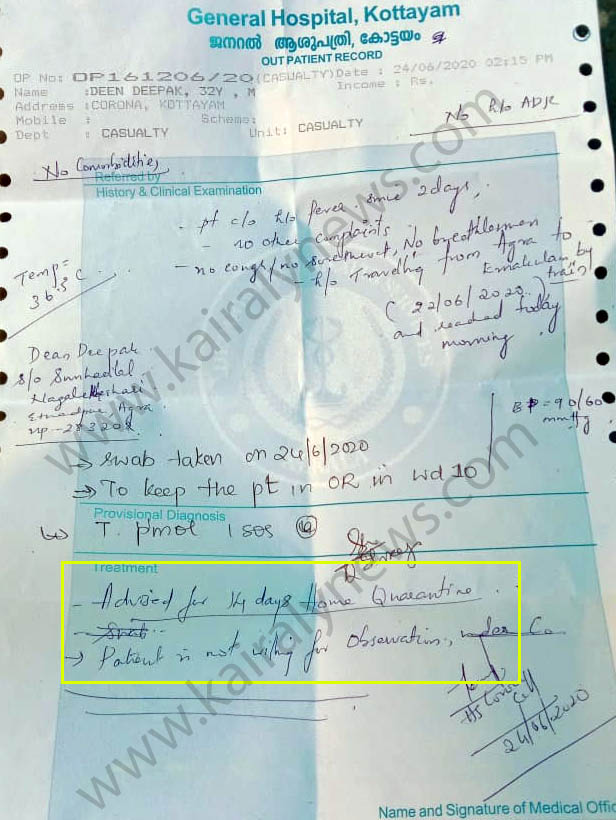 General Hospital, Kottayam
ജനറൽ ആശുപത്രി, കോട്ടയം
OUT PATIENT RECORD
OP No: OP161206/20 (CASUALTY) Date : 24/06/2020 02:15 PM
Name : DEEN DEEPAK, 32Y , M Income : Rs.
Address :CORONA, KOTTAYAM
Mobile : Scheme:
Dept : CASUALTY Unit: CASUALTY
No h/o ADR
No Comorbidities
Referred by
History & Clinical Examination
- pt c/o h/o fever since 2 days,
- no other complaints
- no cough/no, No breathlessness
- h/o Travelling from Agra to
Ernakulam by
train
(22/06/2020)
and reached today
morning
Temp =
36.3°C
Dean Deepak
S/o
Agra
up-283202
BP = 90/60
mmHg
→ swab taken on 24/6/2020
⇒ To keep the pt in OR in wd 10
Provisional Diagnosis
T. pmol 1 sos
Treatment
- Advised for 14 days Home Quarantine.
→ Patient is not willing for Observation, under Co
Corona
Cell
24/06/2020
Name and Signature of Medical Offic
www.kairalynews.com
www.kairalynews.com
www.kairalynews.com